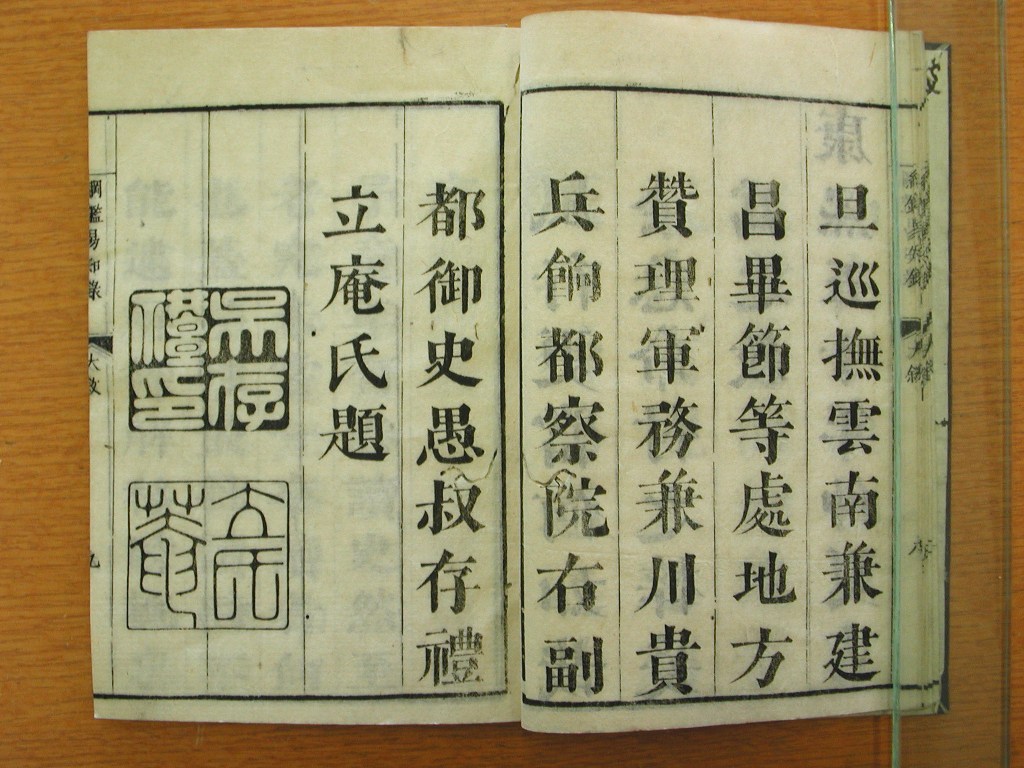 旦巡撫雲南兼建
昌畢節等處地方
贊理軍務兼川貴
兵餉都察院右副
都御史愚叔存禮
立庵氏題
吳存禮印
立庵
綱鑑易知錄